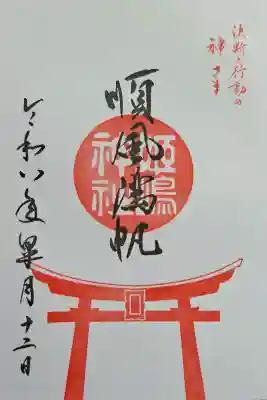 決断と行動の
神さま
順風満帆
姫嶋
神社
令和八年皐月十二日